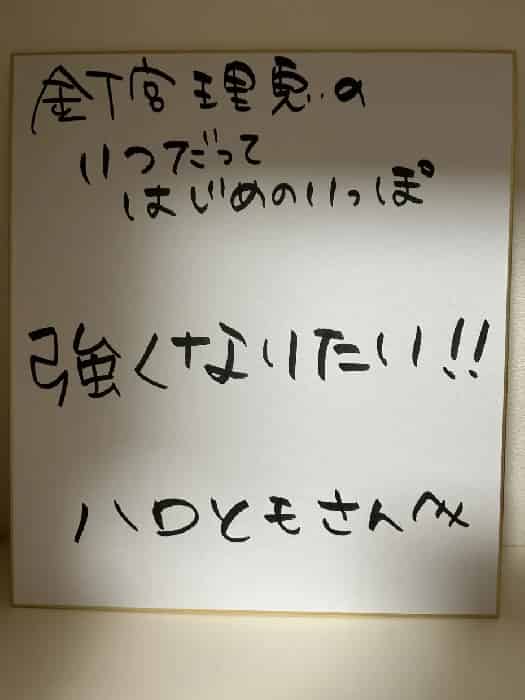 釘宮理恵の
いつだって
はじめのいっぽ
強くなりたい!!
ハロともさんへ